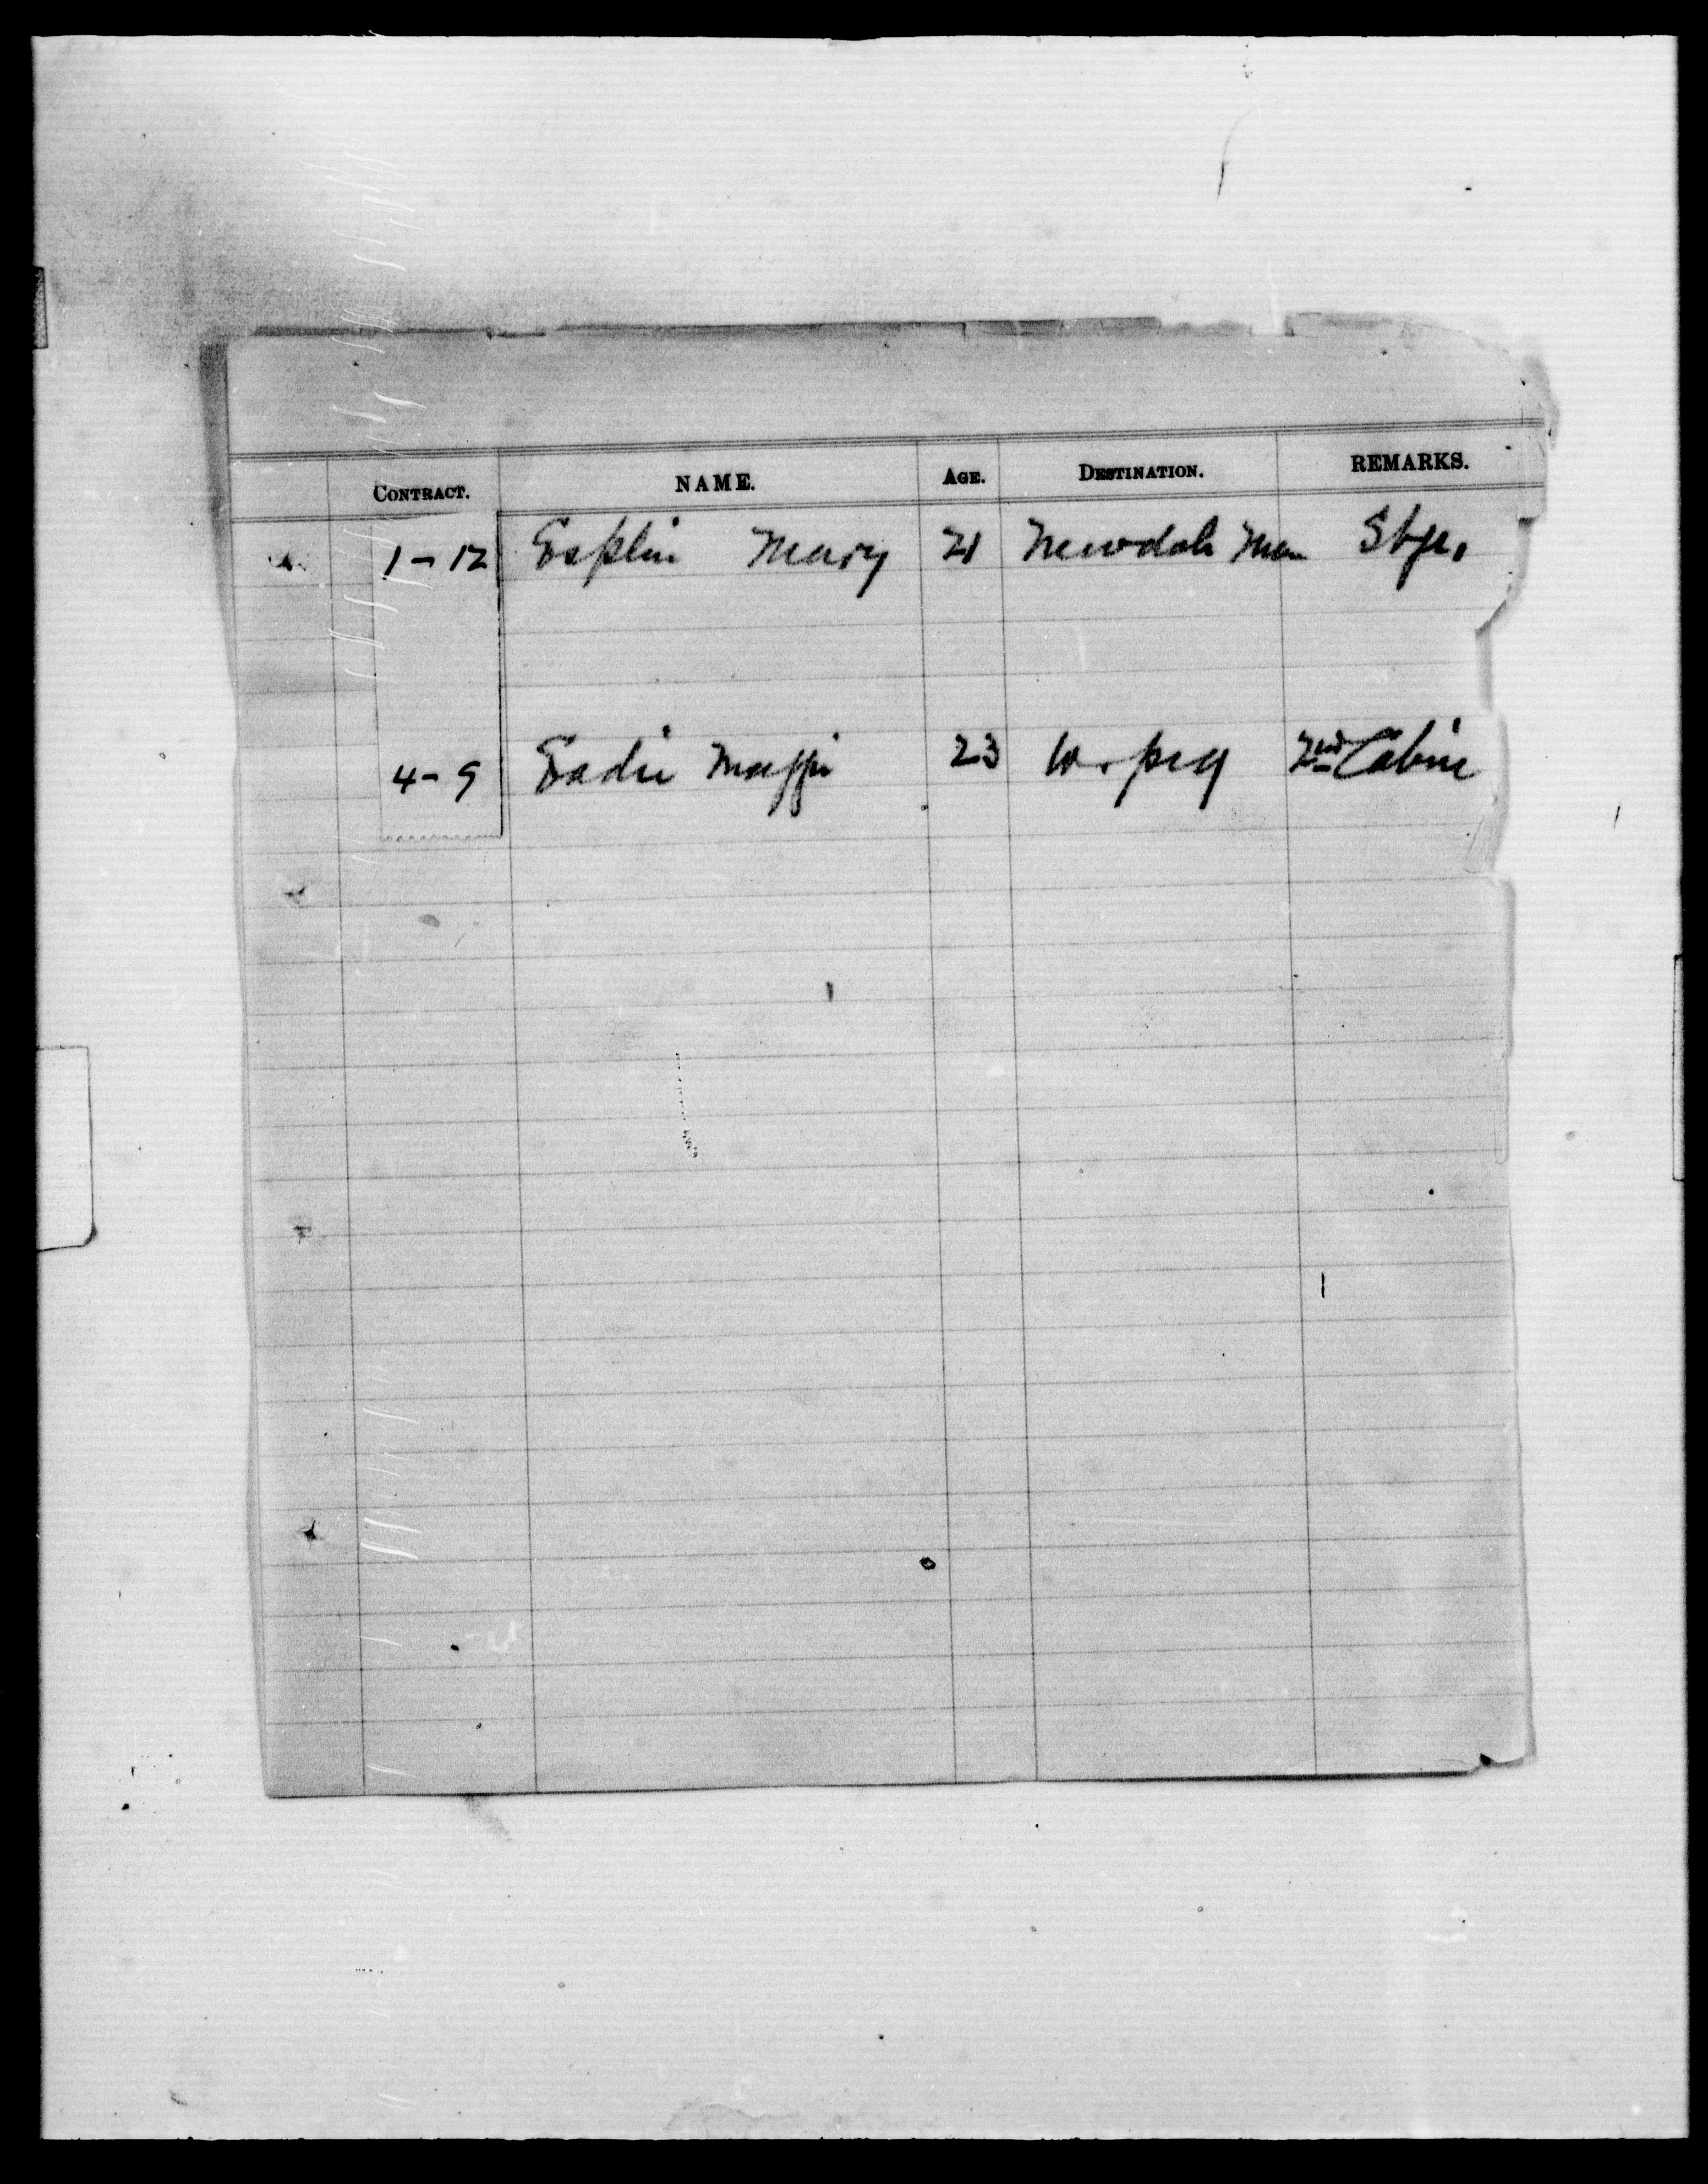 CONTRACT. NAME. AGE. DESTINATION. REMARKS.
1-12 Esplin Mary 21 Newdale Man Stge.
4-9 Eadie Maggie 23 W. peg 2nd Cabin